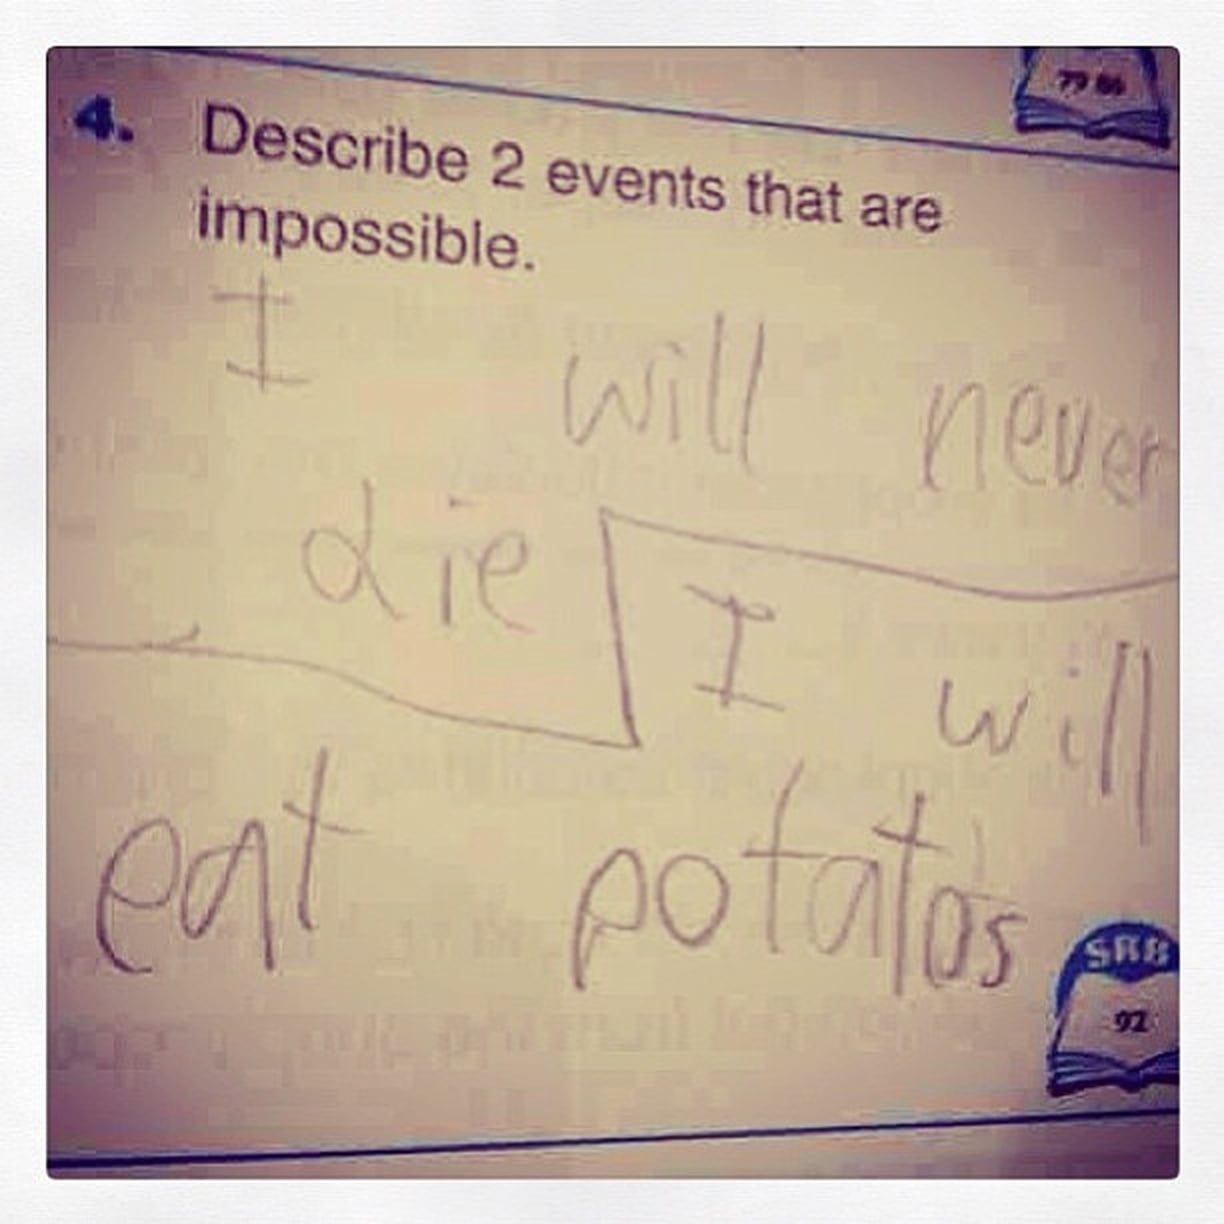 79 86
4. Describe 2 events that are
impossible.
I will never
die
I will
eat potatos
SRB
92